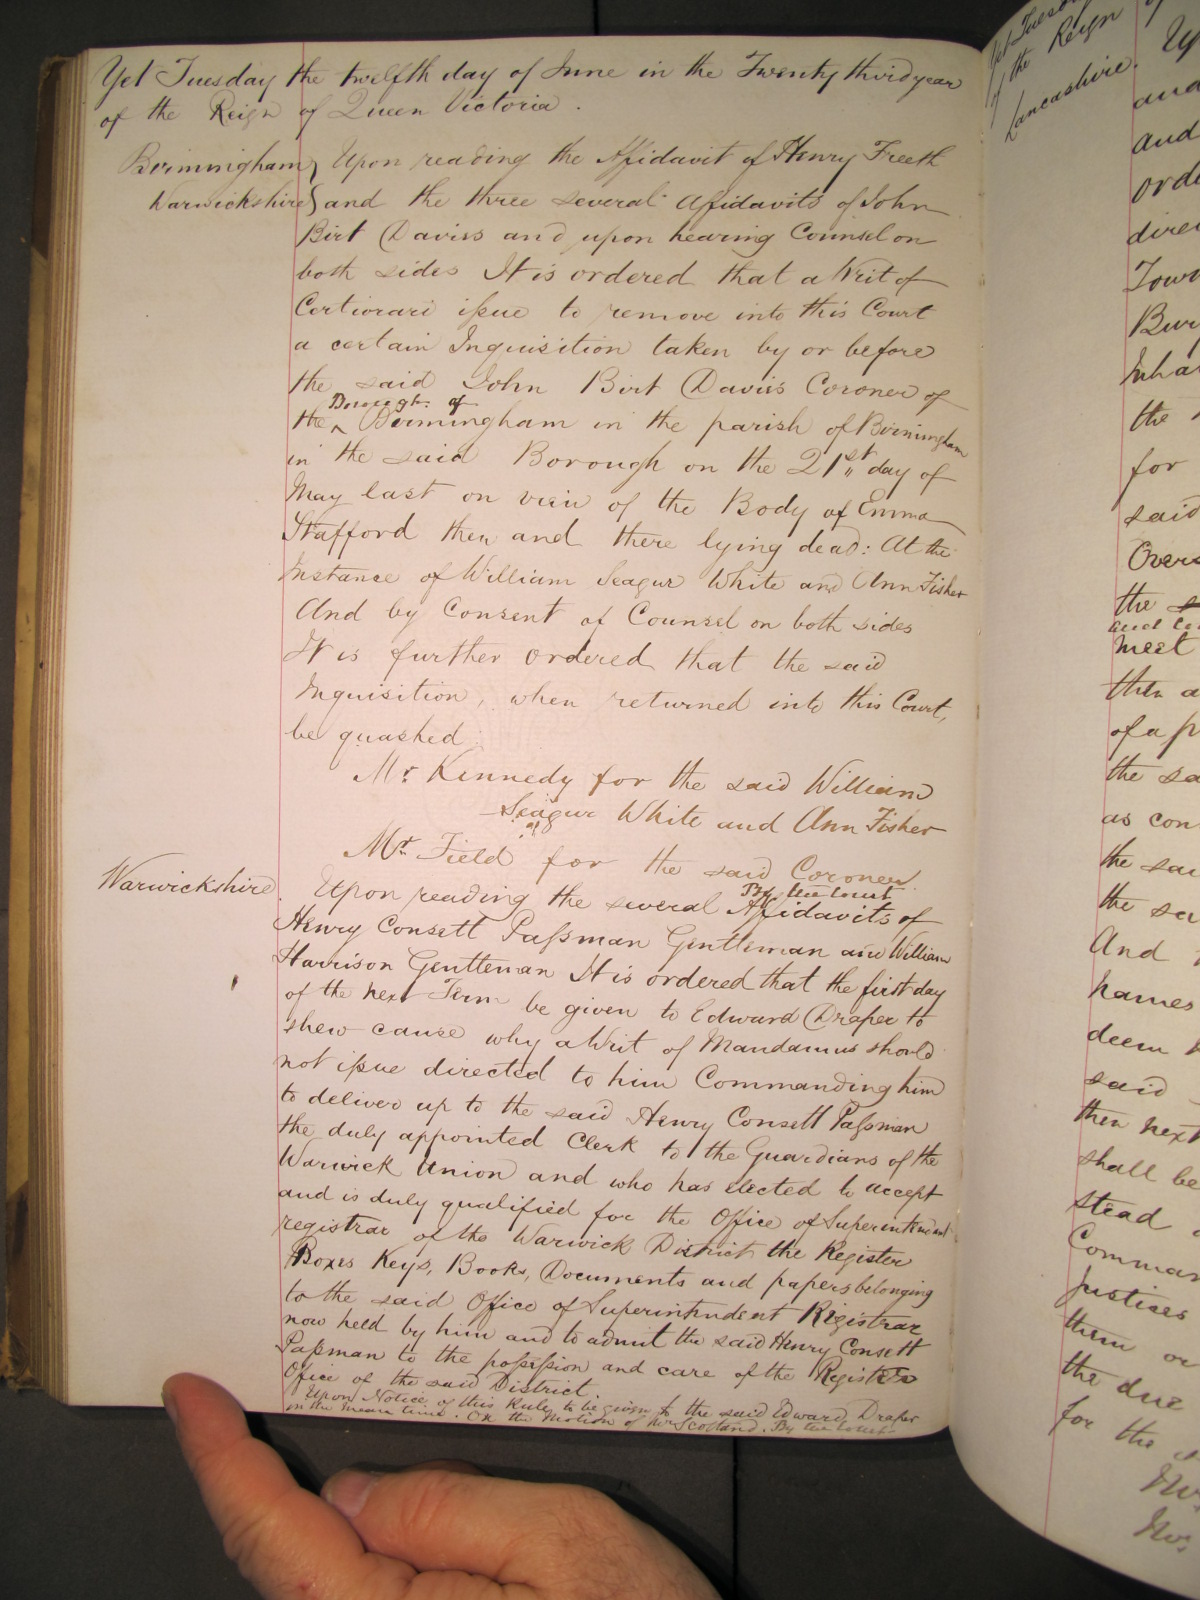 Yet Tuesday the twelfth day of June in the Twenty third year
of the Reign of Queen Victoria.
Birmingham } Upon reading the Affidavit of Henry Freeth
Warwickshire } and the three several Affidavits of John
Birt Davies and upon hearing Counsel on
both sides It is ordered that a Writ of
Certiorari issue to remove into this Court
a certain Inquisition taken by or before
the said John Birt Davies Coroner of
Borough of
the ^ Birmingham in the parish of Birmingham
in the said Borough on the 21st day of
May last on view of the Body of Emma
Stafford then and there lying dead: At the
Instance of William Seagur White and Ann Fisher
And by Consent of Counsel on both sides
It is further ordered that the said
Inquisition, when returned into this Court,
be quashed.
Mr Kennedy for the said William
Seagur White and Ann Fisher
Mr. Field for the said Coroner.
By the Court
Warwickshire. Upon reading the several Affidavits of
Henry Consett Passman Gentleman and William
Harrison Gentleman It is ordered that the first day
of the next Term be given to Edward Draper to
shew cause why a Writ of Mandamus should
not issue directed to him Commanding him
to deliver up to the said Henry Consett Passman
the duly appointed Clerk to the Guardians of the
Warwick Union and who has elected to accept
and is duly qualified for the Office of Superintendent
registrar of the Warwick District the Register
Boxes Keys, Books, Documents and papers belonging
to the said Office of Superintendent Registrar
now held by him and to admit the said Henry Consett
Passman to the possession and care of the Register
Office of the said District.
Upon Notice of this Rule to be given to the said Edward Draper
in the mean time. On the Motion of Mr Scotland. By the Court
Yet Tuesday
of the Reign
Lancashire.
and
and
orde
direc
Town
Bur
Inha
the
for
said
Overs
the
and
meet
then a
of a p
the sa
as con
the sai
the sa
And
names
deem
said
then next
shall be
stead
Comman
Justices
them or
the due
for the